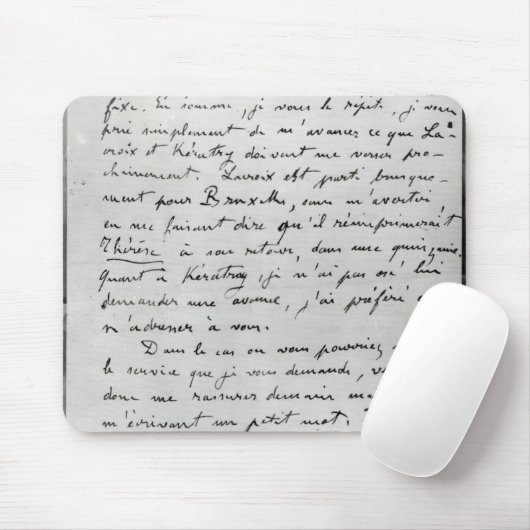 fixe. En somme, je vous le répète, je vous
prie simplement de m'avancer ce que La-
croix et Kératry doivent me verser pro-
chainement. Lacroix est parti brusque-
ment pour Bruxelles, sans m'avertir,
en me faisant dire qu'il réimprimerait
Thérèse à son retour, dans une quinzaine.
Quant à Kératry, je n'ai pas osé lui
demander une avance, j'ai préféré
m'adresser à vous.
Dans le cas où vous pourriez
le service que je vous demande,
donc me rassurer demain
m'écrivant un petit mot.